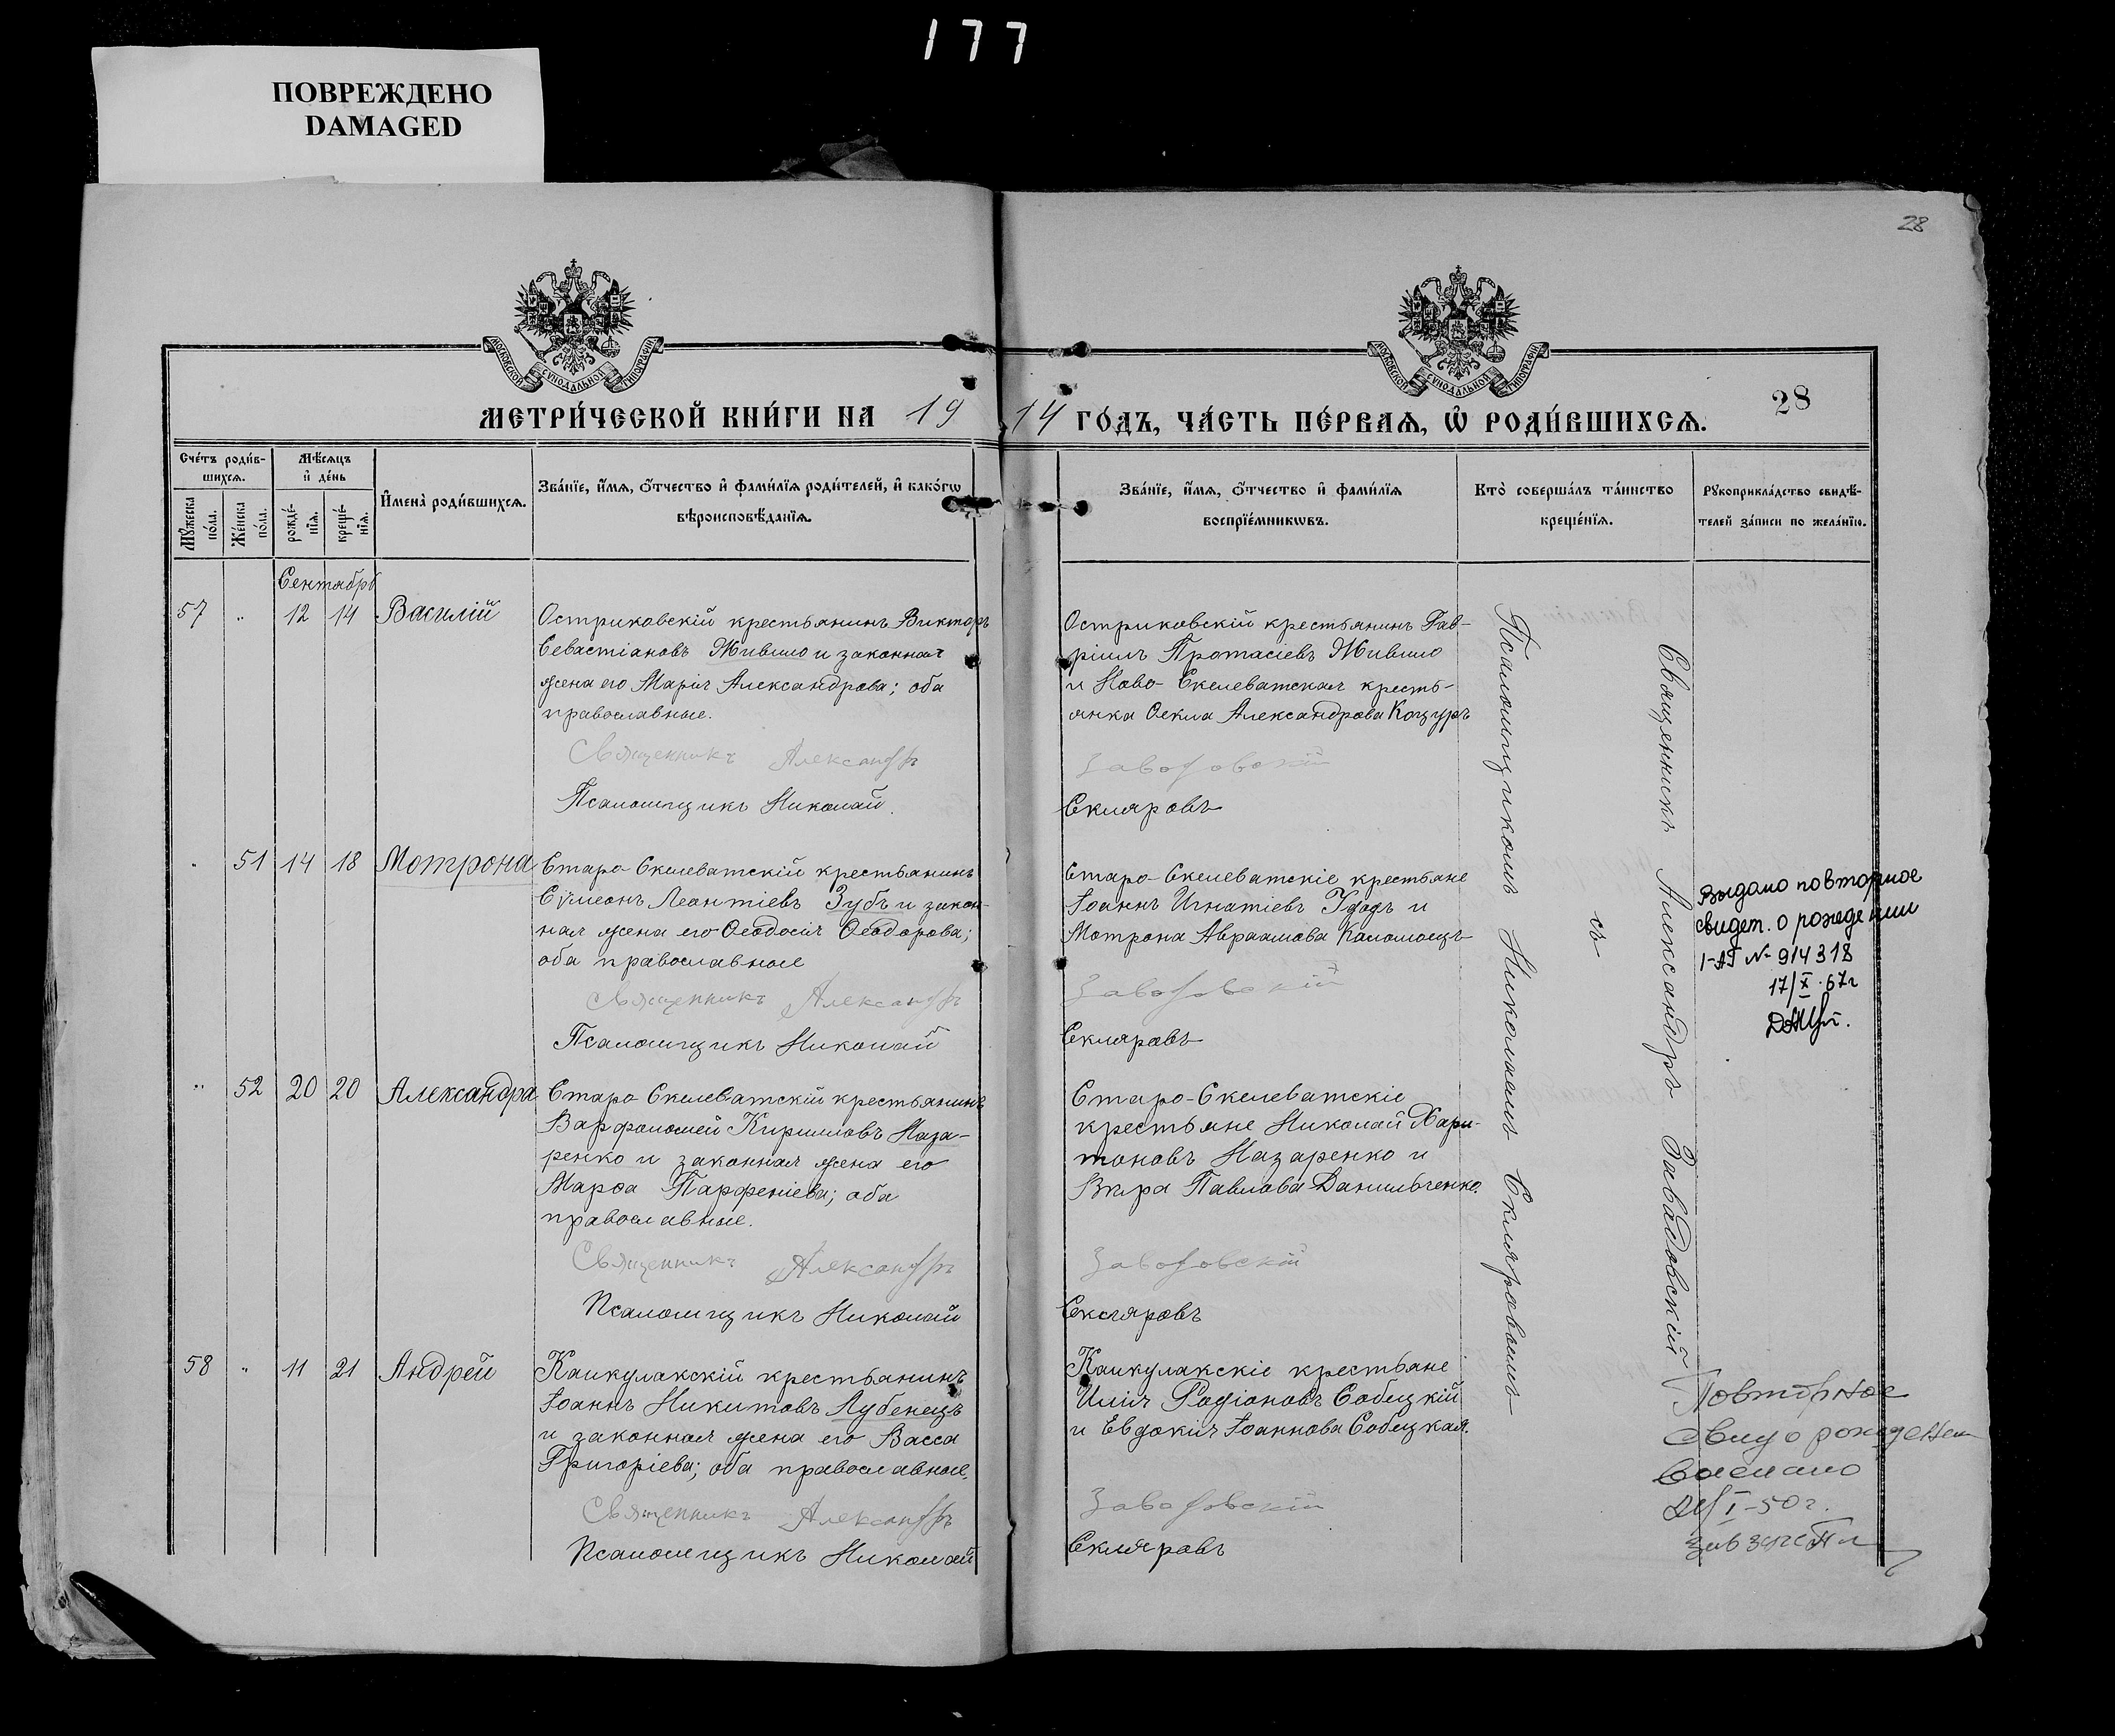 177
ПОВРЕЖДЕНО
DAMAGED
28
МОСКОВСКОЙ СУНОДАЛЬНОЙ ТИПОГРАФІИ
МОСКОВСКОЙ СУНОДАЛЬНОЙ ТИПОГРАФІИ
МЕТРИ́ЧЕСКОЙ КНИ́ГИ НА 19 14 ГО́ДЪ, ЧА́СТЬ ПЕ́РВАЯ, Ѡ РОДИ́ВШИХСЯ. 28
Сче́тъ роди́в-
шихся.
Мѣ́сяцъ
и де́нь
Мꙋ́жеска
по́ла.
Же́нска
по́ла.
рожде́-
нїя.
креще́-
нїя.
Имена̀ роди́вшихся.
Зва́нїе, и́мя, о́тчество и фами́лїя роди́телей, и како́гѡ
вѣроисповѣ́данїя.
Зва́нїе, и́мя, о́тчество и фами́лїя
воспрїе́мникѡвъ.
Кто̀ соверша́лъ та́инство
креще́нїя.
Рꙋкоприкла́дство свидѣ́-
телей за́писи по жела́нїю.
Сентябрь
57 " 12 14 Василій
Остриковскій крестьянинъ Викторъ
Севастіановъ Жившо и законная
жена его Марія Александрова; оба
православные.
Священникъ Александръ
Псаломщикъ Николай
Остриковскій крестьянинъ Гав-
ріилъ Протасіевъ Жившо
и Ново-Скелеватская кресть-
янка Ѳекла Александрова Коцуръ
Завадовскій
Скляровъ
" 51 14 18 Мотрона
Старо-Скелеватскій крестьянинъ
Сѵмеонъ Леонтіевъ Зубъ и закон-
ная жена его Ѳеодосія Ѳеодорова;
оба православные
Священникъ Александръ
Псаломщикъ Николай
Старо-Скелеватскіе крестьяне
Іоаннъ Игнатіевъ Удодъ и
Мотрона Авраамова Коломоецъ
Завадовскій
Скляровъ
Выдано повторное
свидет. о рождении
I-АГ № 914318
17/X 67г
" 52 20 20 Александра
Старо-Скелеватскій крестьянинъ
Варфоломей Кирилловъ Наза-
ренко и законная жена его
Марѳа Парфеніева; оба
православные.
Священникъ Александръ
Псаломщикъ Николай
Старо-Скелеватскіе
крестьяне Николай Хари-
тоновъ Назаренко и
Вѣра Павлова Данильченко.
Завадовскій
Скляровъ
58 " 11 21 Андрей
Каикулакскій крестьянинъ
Іоаннъ Никитовъ Лубенецъ
и законная жена его Васса
Григоріева; оба православные.
Священникъ Александръ
Псаломщикъ Николай
Каикулакскіе крестьяне
Илія Родіоновъ Собецкій
и Евдокія Іоаннова Собецкая.
Завадовскій
Скляровъ
Священникъ Александръ Завадовскій
съ
Псаломщикомъ Николаемъ Скляровымъ
Повторное
свид о рожден
I-50г.